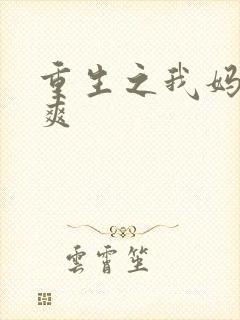 重生之我妈
爽
雲霄笙